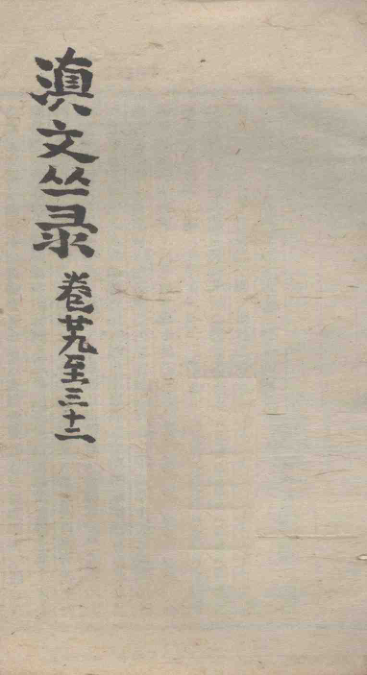 滇文丛录
卷廿九至三十二